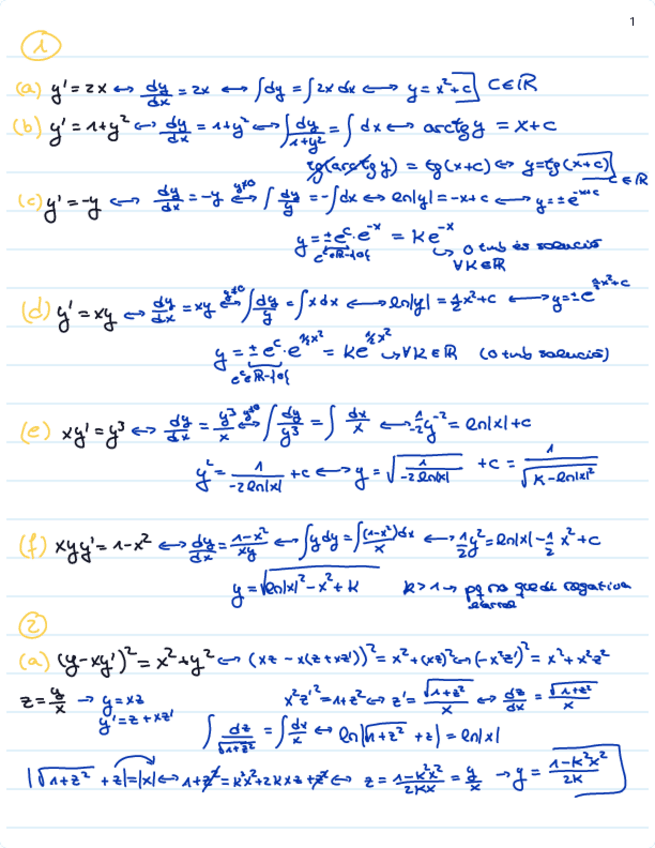 1
1
(a) y' = 2x ↔ dy/dx = 2x ↔ ∫dy = ∫2x dx ↔ y = x²+c C∈ℝ
(b) y' = 1+y² ↔ dy/dx = 1+y² ↔ ∫dy/1+y² = ∫dx ↔ arctg y = x+c
tg(arctg y) = tg(x+c) ↔ y = tg(x+c) c∈ℝ
(c) y' = -y ↔ dy/dx = -y y≠0 ↔ ∫dy/y = -∫dx ↔ ln|y| = -x+c ↔ y = ±e^-x+c
y = ±e^c · e^-x = Ke^-x
e^c∈ℝ-{0} ↪ 0 tmb és solució
∀K∈ℝ
(d) y' = xy ↔ dy/dx = xy y≠0 ↔ ∫dy/y = ∫x dx ↔ ln|y| = 1/2 x²+c ↔ y = ±e^½x²+c
y = ±e^c · e^½x² = Ke^½x² ↪ ∀K∈ℝ (0 tmb solució)
e^c∈ℝ-{0}
(e) xy' = y³ ↔ dy/dx = y³/x y≠0 ↔ ∫dy/y³ = ∫dx/x ↔ 1/-2 y^-2 = ln|x|+c
y² = 1/-2ln|x| +c ↔ y = √(1/-2ln|x|) +c = 1/√(K-ln|x|²)
(f) xyy' = 1-x² ↔ dy/dx = 1-x²/xy ↔ ∫y dy = ∫(1-x²)dx/x ↔ 1/2 y² = ln|x| - 1/2 x²+c
y = √(ln|x|² - x² + K) K>1 → pq no quedi negativa
2
(a) (y-xy')² = x²+y² ↔ (xz - x(z+xz'))² = x²+(xz)² ↔ (-x²z')² = x²+x²z²
z = y/x → y = xz x²z'² = 1+z² ↔ z' = √(1+z²)/x ↔ dz/dx = √(1+z²)/x
y' = z+xz'
∫dz/√(1+z²) = ∫dx/x ↔ ln|√(1+z²) + z| = ln|x|
|√(1+z²) + z| = |x| ↔ 1+z² = K²x²+2Kxz+z² ↔ z = 1-K²x²/2Kx = y/x → y = 1-K²x²/2K